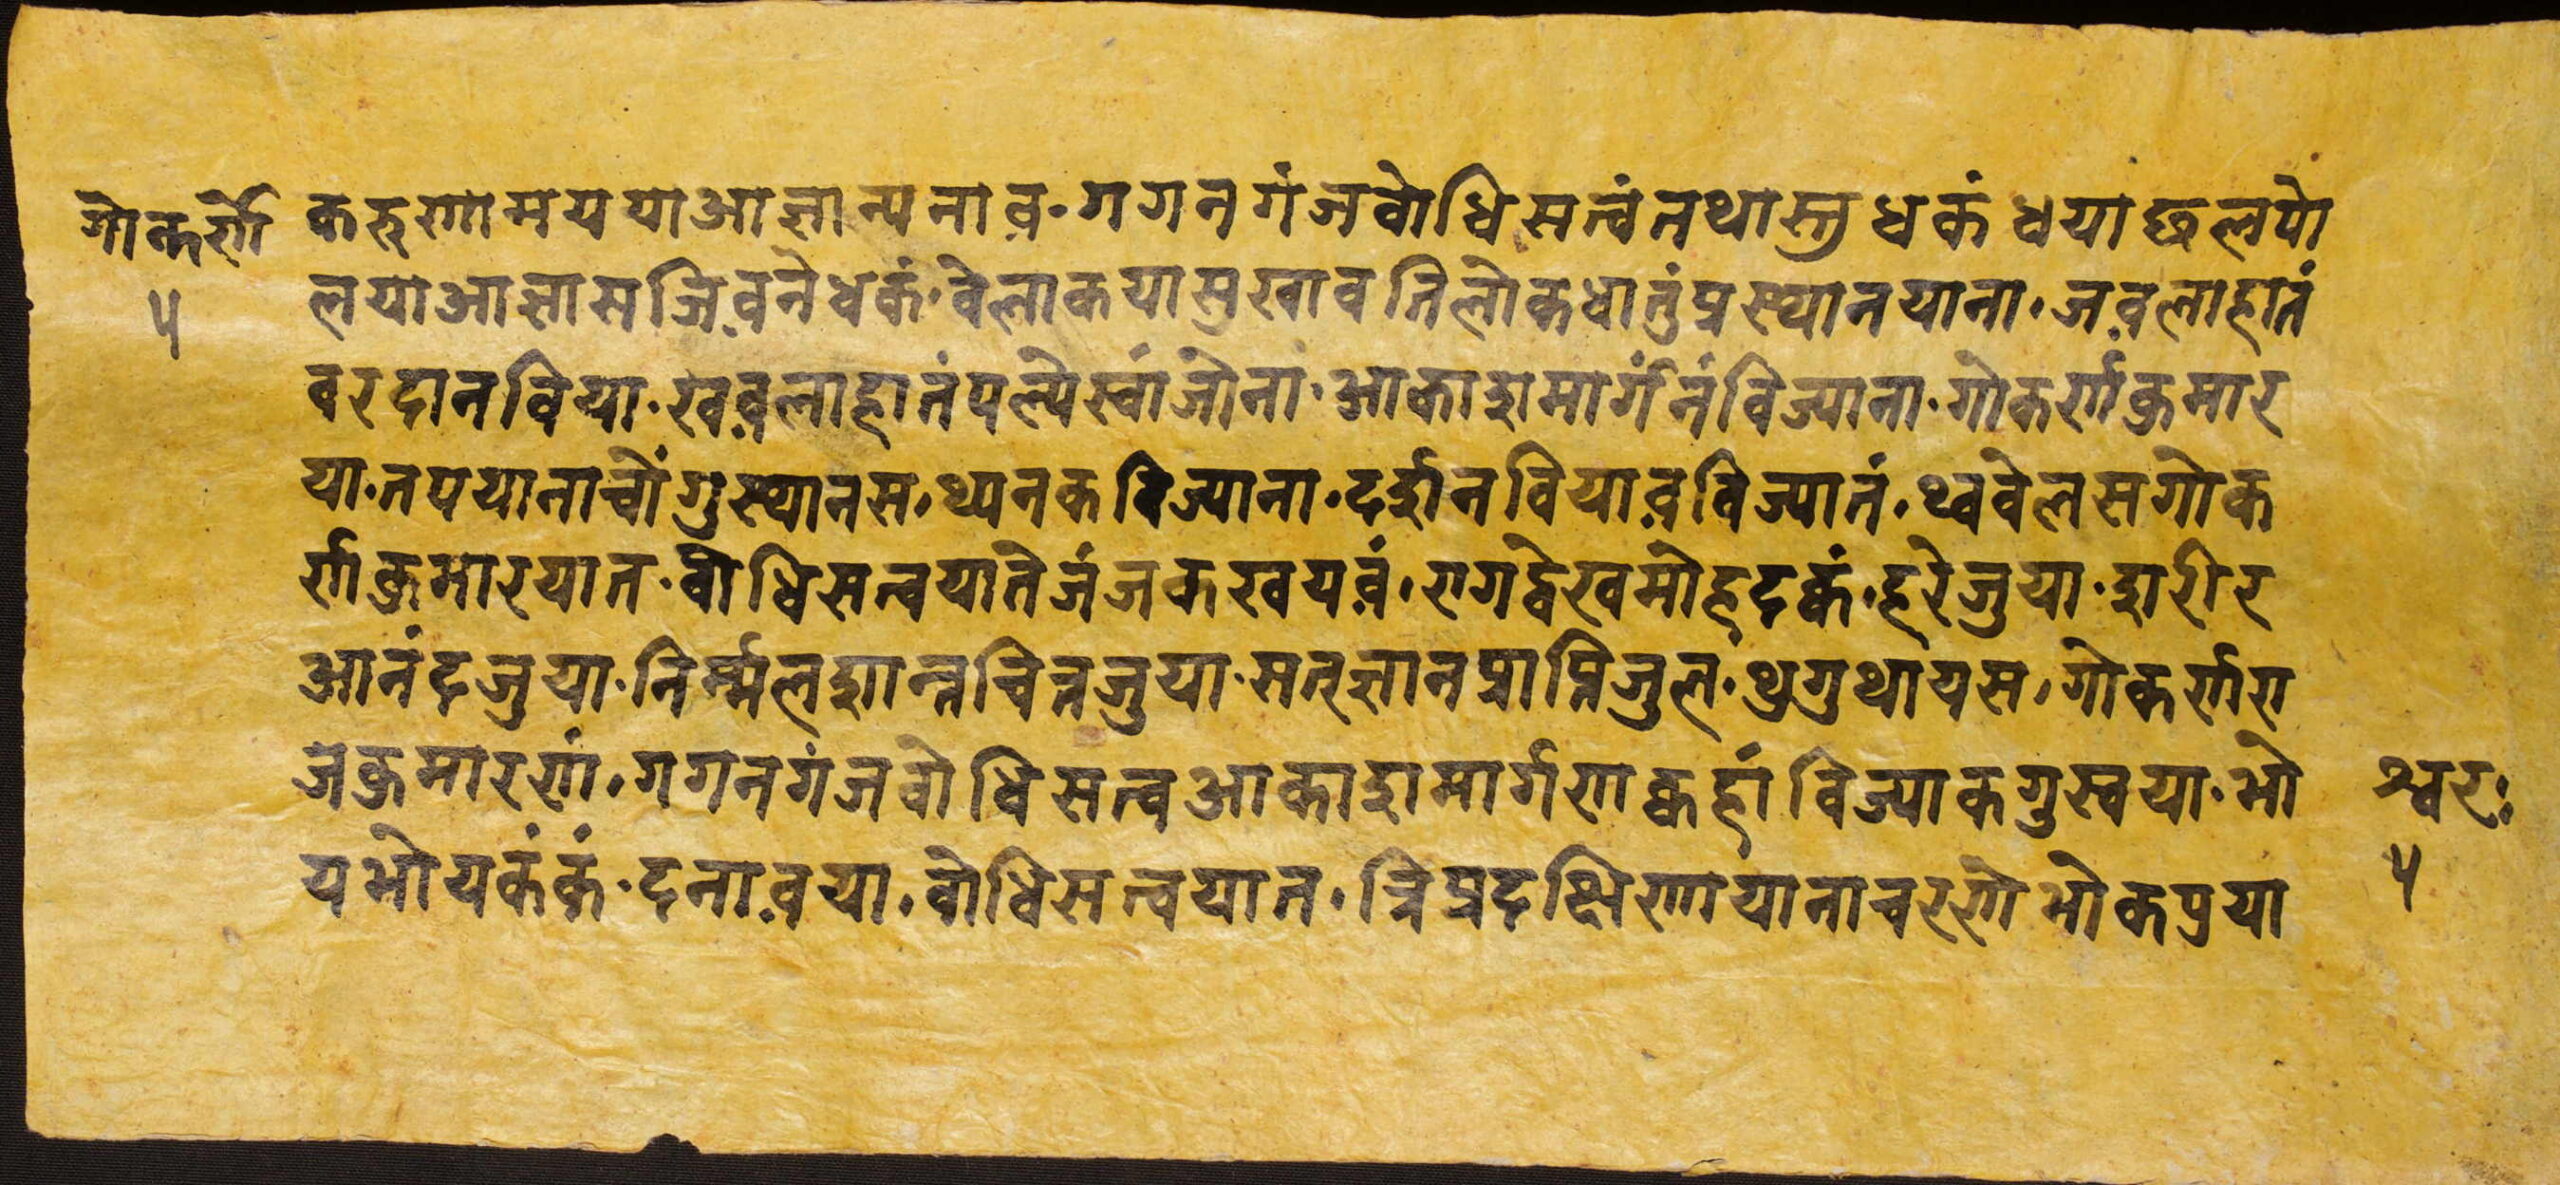 गोकर्णे करुणामययाआज्ञान्यनाव़・गगनगंजबोधिसत्वंतथास्तुधकंधयाछलपो
५ लयाआज्ञासजिव़नेधकं・वेलाकयासुखावतिलोकधातुंप्रस्थानयाना・जव़लाहातं
वरदानविया・खव़लाहातंपल्येस्वांजोना・आकाशमार्गनंविज्याना・गोकर्णकुमार
या・तपयानाचोंगुस्थानस・थ्यनकविज्याना・दर्शनवियाव़विज्यातं・थ्ववेलसगोक
र्णकुमारयात・बोधिसत्वयातेजंजकखयव़ं・रागद्वेखमोहदक्वं・हरेजुया・शरीर
आनंदजुया・निर्म्मलशान्तचित्तजुया・सत्ज्ञानप्राप्तिजुल・थुगुथायस・गोकर्णरा
जकुमारणं・गगनगंजबोधिसत्वआकाशमार्गणक्वहांविज्याकगुस्वया・भो श्वरः
यभोयकंकं・दनाव़या・बोधिसत्वयात・त्रिप्रदक्षिणयानाचरणेभोकपुया ५